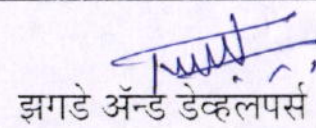 झगडे ॲन्ड डेव्हलपर्स